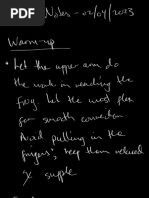 Notes - 02/04/2023
Warm-up
• Let the upper arm do
the work in reaching the
frog. Let the most plex
for smooth connection
Avoid pulling in the
fingers; keep them relaxed
& supple